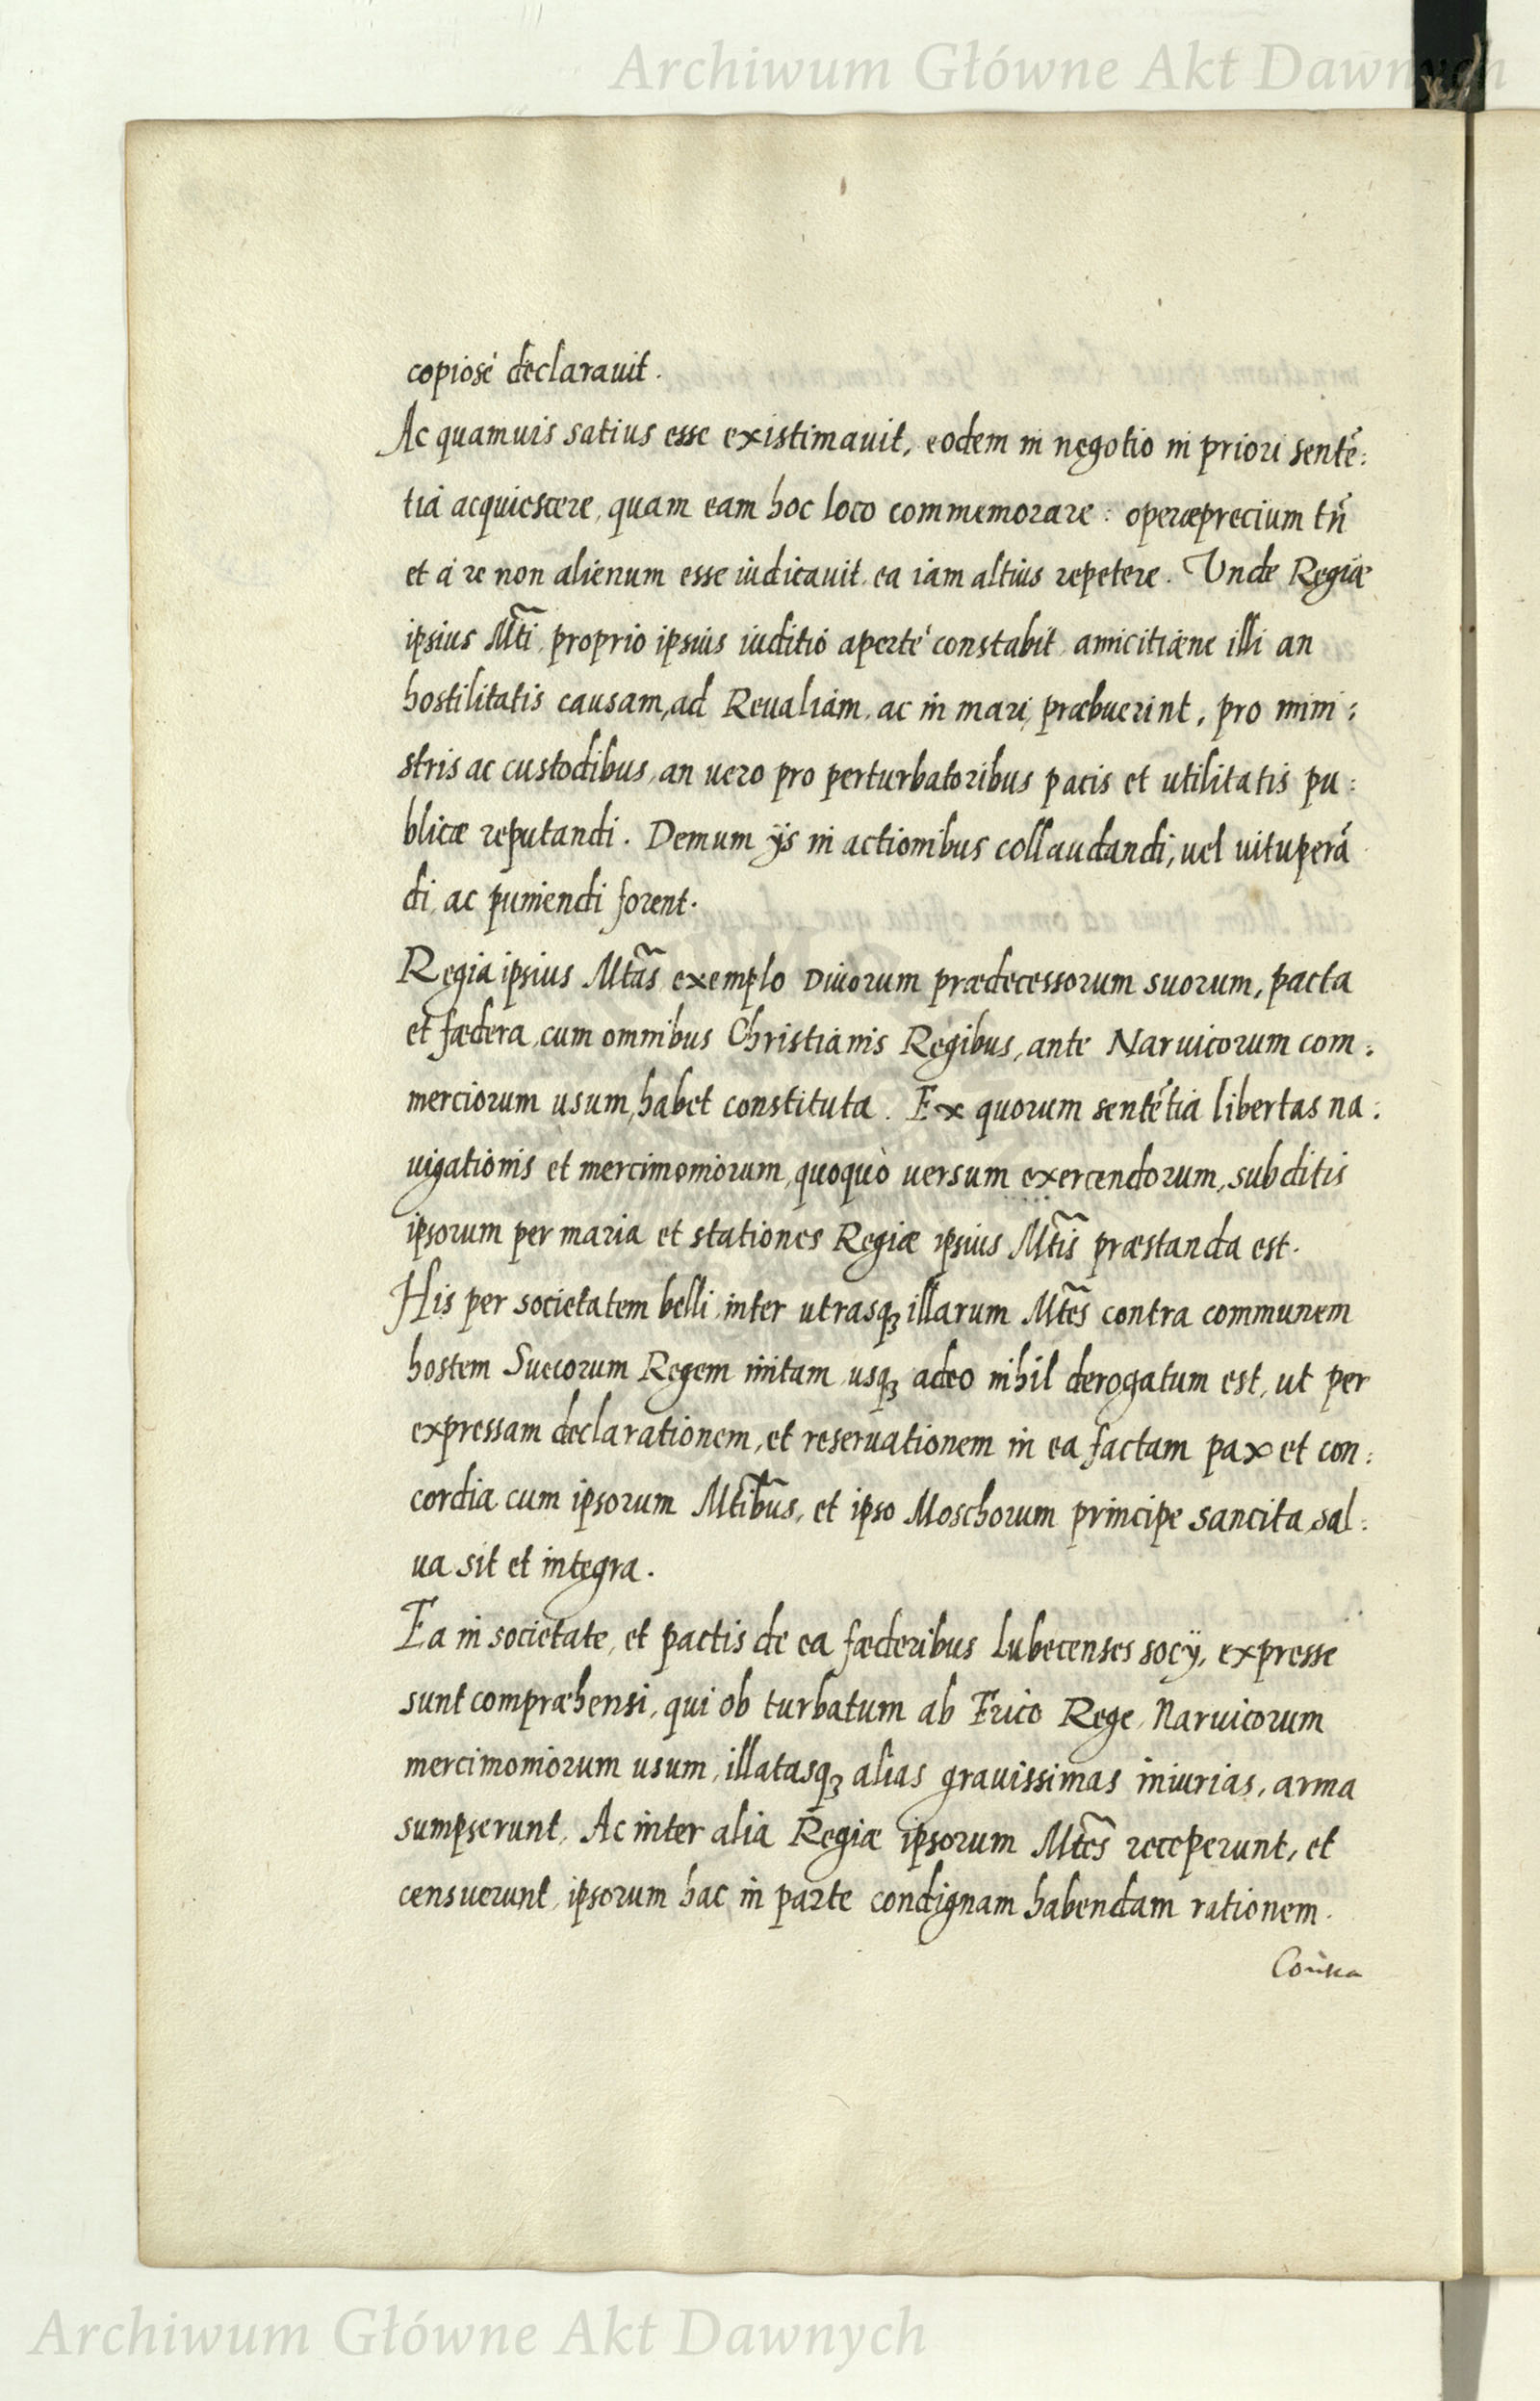 Archiwum Główne Akt Dawnych
copiosè declarauit.
Ac quamuis satius esse existimauit, eodem in negotio in priori sentē:
tia acquiescere, quam eam hoc loco commemorare: operæprecium tn̄
et à re non alienum esse iudicauit, ea iam altius repetere. Vnde Regiæ
ipsius Mti proprio ipsius iuditio apertè constabit, amicitiæne illi an
hostilitatis causam, ad Reualiam, ac in mari, præbuerint, pro mini:
stris ac custodibus, an uero pro perturbatoribus pacis et utilitatis pu:
blicæ reputandi. Demum ijs in actionibus collaudandi, uel uituperā
di, ac puniendi forent.
Regia ipsius Mtas exemplo Diuorum prædecessorum suorum, pacta
et fædera, cum omnibus Christianis Regibus, ante Naruicorum com:
merciorum usum, habet constituta. Ex quorum sentētia libertas na:
uigationis et mercimoniorum, quoquò uersum exercendorum, subditis
ipsorum per maria et stationes Regiæ ipsius Mtis præstanda est.
His per societatem belli, inter utrasqꝫ illarum Mtes contra communem
hostem Suecorum Regem initam, usqꝫ adeo nihil derogatum est, ut per
expressam declarationem, et reseruationem in ea factam pax et con:
cordia cum ipsorum Mtibus, et ipso Moschorum principe sancita, sal:
ua sit et integra.
Ea in societate, et pactis de ea fæderibus Lubecenses socij, expresse
sunt compræhensi, qui ob turbatum ab Erico Rege, Naruicorum
mercimoniorum usum, illatasqꝫ alias grauissimas iniurias, arma
sumpserunt, Ac inter alia Regiæ ipsorum Mtes receperunt, et
censuerunt, ipsorum hac in parte condignam habendam rationem.
Archiwum Główne Akt Dawnych